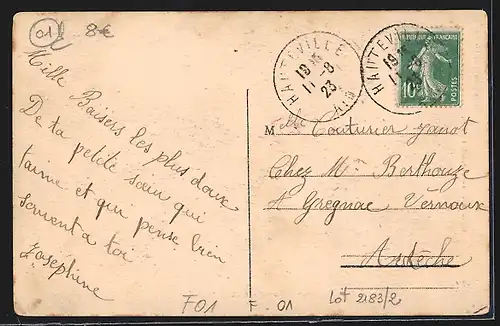 01
8€
Mille Baisers les plus doux
De ta petite sœur qui
t'aime et qui pense bien
souvent a toi
Josephine
HAUTEVILLE
19
11-8
23
AIN
HAUTEVILLE
19
11-8
10c
POSTES
M elle Couturier Janot
Chez Mr Berthouze
a Gregnac Vernoux
Ardèche
F01
F. 01
Lot 2183/2